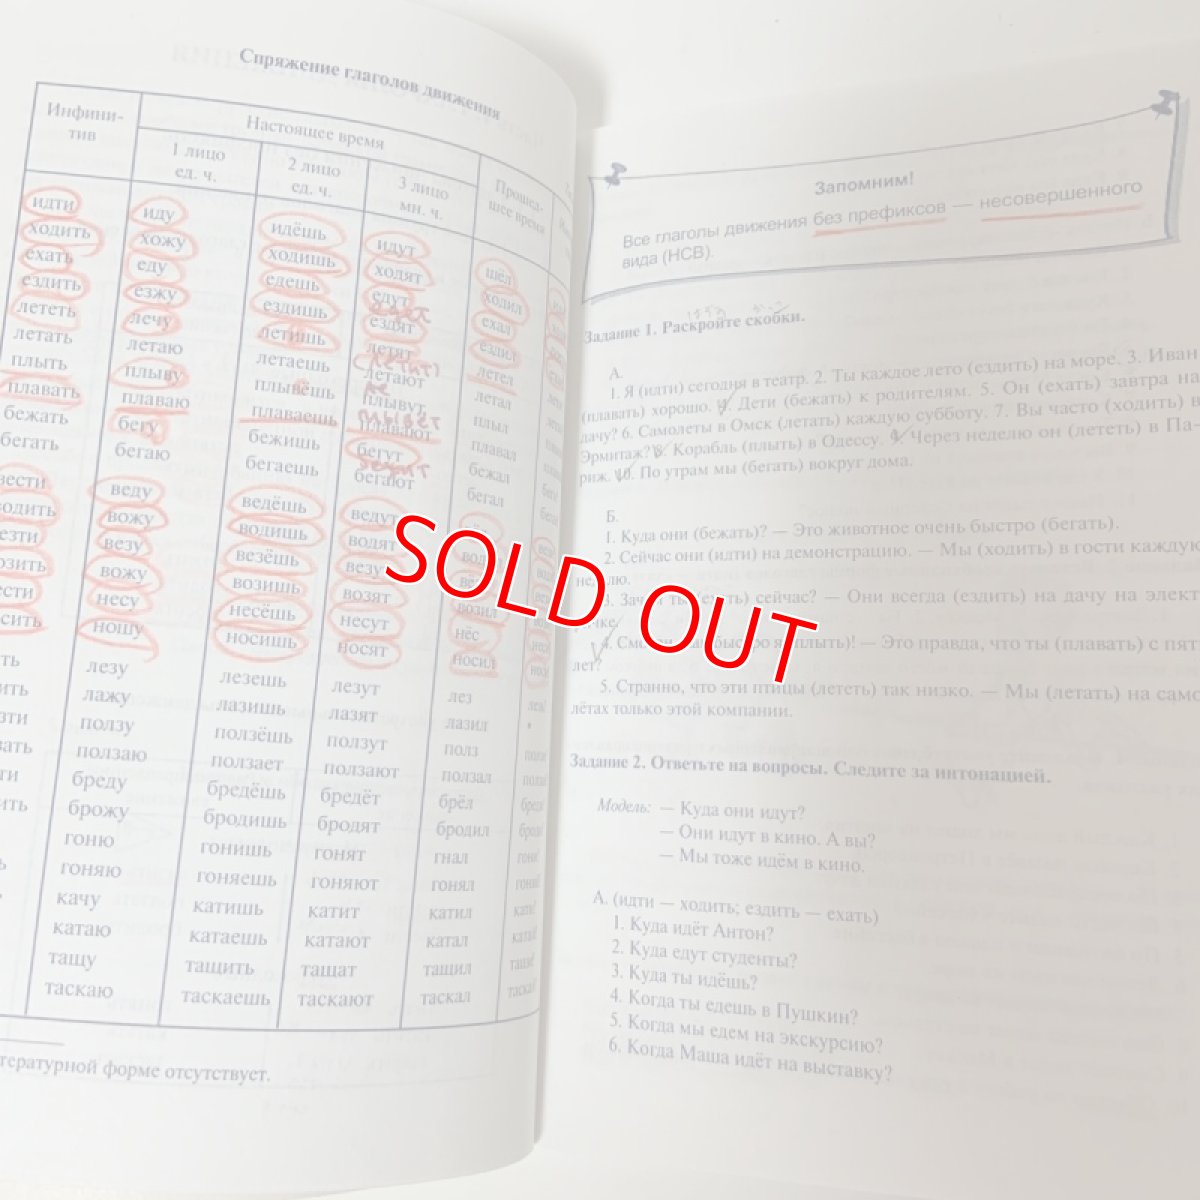 Спряжение глаголов движения
Инфини-
тив
Настоящее время
1 лицо
ед. ч.
2 лицо
ед. ч.
3 лицо
мн. ч.
Прошед-
шее время
идти иду идёшь идут шёл
ходить хожу ходишь ходят ходил
ехать еду едешь едут ехал
ездить езжу ездишь ездят ездил
лететь лечу летишь летят летел
летать летаю летаешь летают летал
плыть плыву плывёшь плывут плыл
плавать плаваю плаваешь плавают плавал
бежать бегу бежишь бегут бежал
бегать бегаю бегаешь бегают бегал
вести веду ведёшь ведут
водить вожу водишь водят
везти везу везёшь везут
возить вожу возишь возят возил
ести несу несёшь несут нёс
сить ношу носишь носят носил
ть лезу лезешь лезут лез
ить лажу лазишь лазят лазил *
зти ползу ползёшь ползут полз
ать ползаю ползает ползают ползал
ти бреду бредёшь бредёт брёл
ить брожу бродишь бродят бродил
гоню гонишь гонят гнал
гоняю гоняешь гоняют гонял
качу катишь катит катил
катаю катаешь катают катал
тащу тащить тащат тащил
таскаю таскаешь таскают таскал
тературной форме отсутствует.
Запомним!
Все глаголы движения без префиксов — несовершенного
вида (НСВ).
Задание 1. Раскройте скобки.
А.
1. Я (идти) сегодня в театр. 2. Ты каждое лето (ездить) на море. 3. Иван
(плавать) хорошо. 4. Дети (бежать) к родителям. 5. Он (ехать) завтра на
дачу? 6. Самолеты в Омск (летать) каждую субботу. 7. Вы часто (ходить) в
Эрмитаж? 8. Корабль (плыть) в Одессу. 9. Через неделю он (лететь) в Па-
риж. 10. По утрам мы (бегать) вокруг дома.
Б.
1. Куда они (бежать)? — Это животное очень быстро (бегать).
2. Сейчас они (идти) на демонстрацию. — Мы (ходить) в гости каждую
неделю.
3. Зачем ты (ехать) сейчас? — Они всегда (ездить) на дачу на элект
ричке.
4. Смотри, как быстро я (плыть)! — Это правда, что ты (плавать) с пят
лет?
5. Странно, что эти птицы (лететь) так низко. — Мы (летать) на само
лётах только этой компании.
Задание 2. Ответьте на вопросы. Следите за интонацией.
Модель: — Куда они идут?
— Они идут в кино. А вы?
— Мы тоже идём в кино.
А. (идти — ходить; ездить — ехать)
1. Куда идёт Антон?
2. Куда едут студенты?
3. Куда ты идёшь?
4. Когда ты едешь в Пушкин?
5. Когда мы едем на экскурсию?
6. Когда Маша идёт на выставку?
SOLD OUT